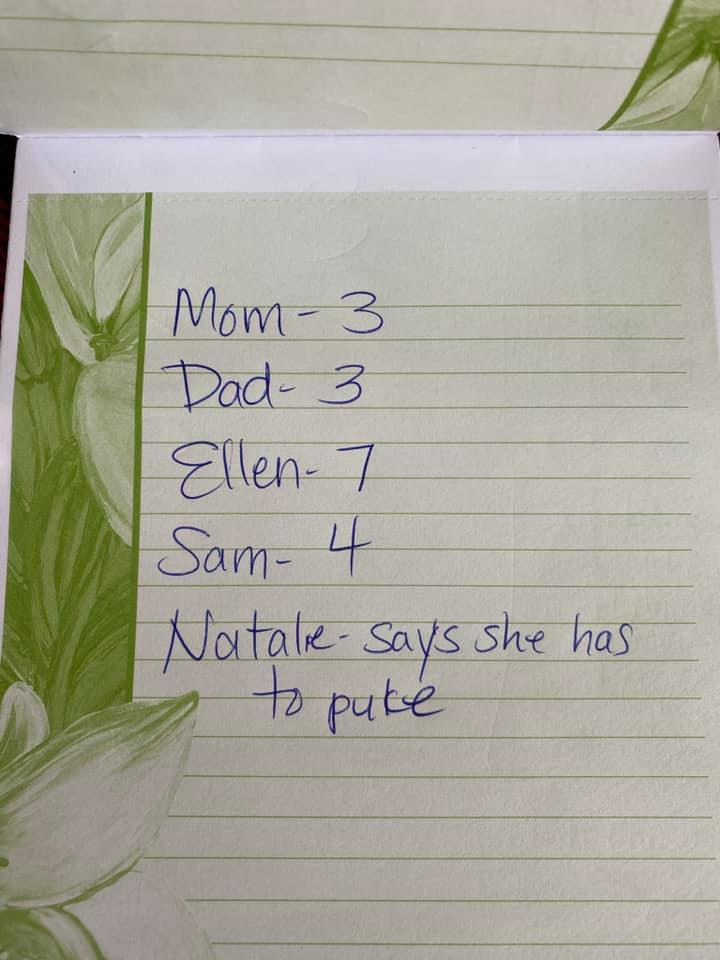 Mom- 3
Dad- 3
Ellen- 7
Sam- 4
Natalie- says she has
to puke